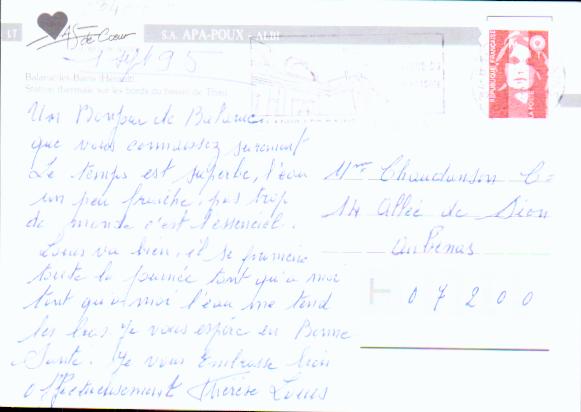 17
As de Cœur
S.A. APA-POUX - ALBI
1 Sept 95
Balaruc-les-Bains (Hérault)
Station thermale sur les bords du bassin de Thau
REPUBLIQUE FRANÇAISE
LA POSTE
Un Bonjour de Balaruc
que vous connaissez surement
Le temps est superbe, l'eau
un peu fraiche, pas trop
de monde c'est l'essenciel.
Louis va bien, il se promène
toute la journée tant qu'a moi
tant qu'a moi l'eau me tend
les bras. Je vous espère en Bonne
Santé. Je vous Embrasse bien
affectueusement Thérèse Louis
Mme Chaudanson C
14 Allée de Sion
Aubenas
07200